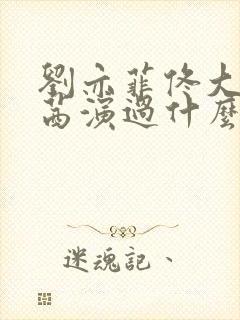 劉亦菲佟大
茜演過什麼
迷魂記、